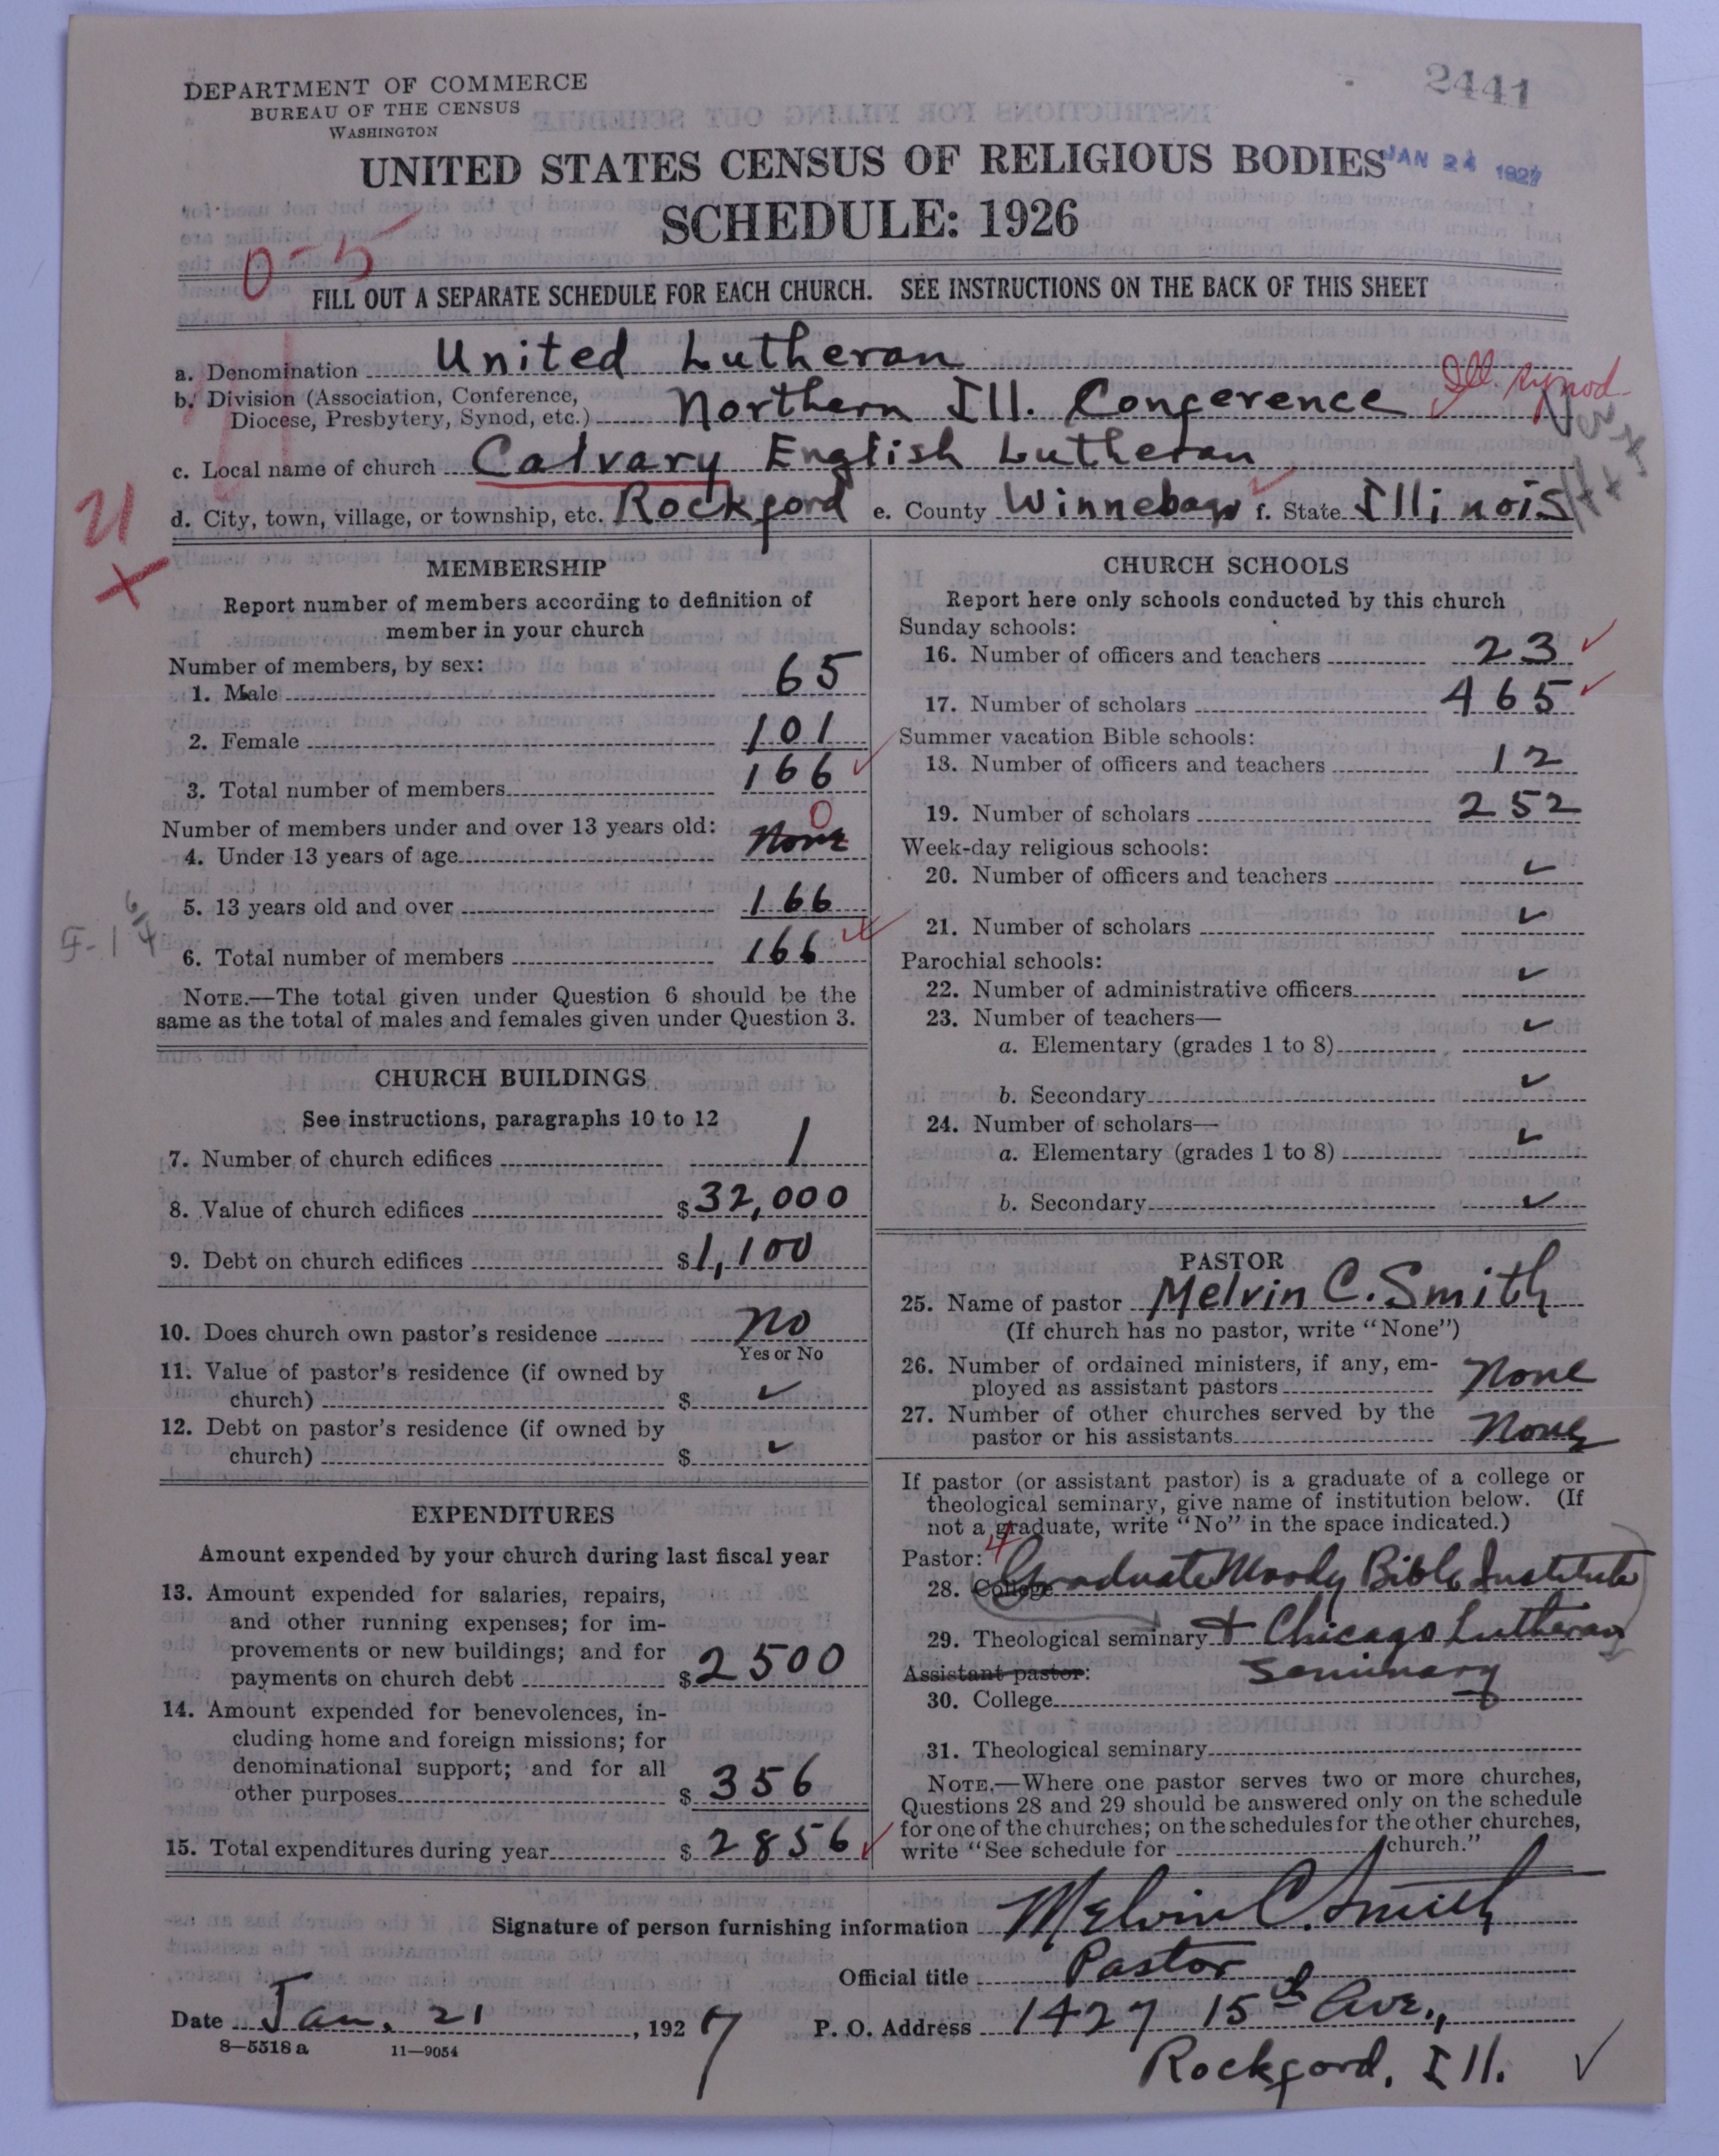 2441
DEPARTMENT OF COMMERCE
BUREAU OF THE CENSUS
WASHINGTON
UNITED STATES CENSUS OF RELIGIOUS BODIES
JAN 24 1927
SCHEDULE: 1926
0-5
FILL OUT A SEPARATE SCHEDULE FOR EACH CHURCH. SEE INSTRUCTIONS ON THE BACK OF THIS SHEET
a. Denomination United Lutheran
b. Division (Association, Conference,
Diocese, Presbytery, Synod, etc.) Northern Ill. Conference Ill. Synod
c. Local name of church Calvary English Lutheran
d. City, town, village, or township, etc. Rockford e. County Winnebago f. State Illinois
21
X
MEMBERSHIP
Report number of members according to definition of
member in your church
Number of members, by sex:
1. Male 65
2. Female 101
3. Total number of members 166
Number of members under and over 13 years old:
4. Under 13 years of age None 0
5. 13 years old and over 166
6. Total number of members 166
NOTE.—The total given under Question 6 should be the
same as the total of males and females given under Question 3.
CHURCH BUILDINGS
See instructions, paragraphs 10 to 12
7. Number of church edifices 1
8. Value of church edifices $32,000
9. Debt on church edifices $1,100
10. Does church own pastor's residence No
Yes or No
11. Value of pastor's residence (if owned by
church) $ ✓
12. Debt on pastor's residence (if owned by
church) $ ✓
EXPENDITURES
Amount expended by your church during last fiscal year
13. Amount expended for salaries, repairs,
and other running expenses; for im-
provements or new buildings; and for
payments on church debt $2500
14. Amount expended for benevolences, in-
cluding home and foreign missions; for
denominational support; and for all
other purposes $356
15. Total expenditures during year $2856
CHURCH SCHOOLS
Report here only schools conducted by this church
Sunday schools:
16. Number of officers and teachers 23
17. Number of scholars 465
Summer vacation Bible schools:
18. Number of officers and teachers 12
19. Number of scholars 252
Week-day religious schools:
20. Number of officers and teachers ✓
21. Number of scholars ✓
Parochial schools:
22. Number of administrative officers ✓
23. Number of teachers—
a. Elementary (grades 1 to 8) ✓
b. Secondary ✓
24. Number of scholars—
a. Elementary (grades 1 to 8) ✓
b. Secondary ✓
PASTOR
25. Name of pastor Melvin C. Smith
(If church has no pastor, write "None")
26. Number of ordained ministers, if any, em-
ployed as assistant pastors None
27. Number of other churches served by the
pastor or his assistants None
If pastor (or assistant pastor) is a graduate of a college or
theological seminary, give name of institution below. (If
not a graduate, write "No" in the space indicated.)
Pastor: 4
28. College Graduate Moody Bible Institute
29. Theological seminary + Chicago Lutheran
Assistant pastor: Seminary
30. College
31. Theological seminary
NOTE.—Where one pastor serves two or more churches,
Questions 28 and 29 should be answered only on the schedule
for one of the churches; on the schedules for the other churches,
write "See schedule for church."
Signature of person furnishing information Melvin C. Smith
Official title Pastor
Date Jan. 21, 1927 P. O. Address 1427 15th Ave.,
Rockford, Ill. ✓
8—5518a 11—9054